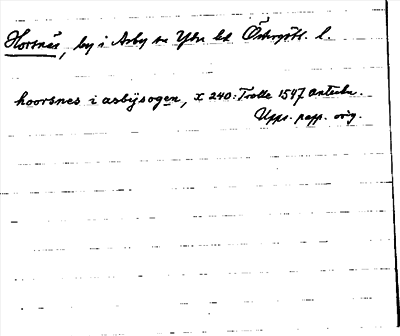 Horsnäs, by i Asby sn Ydre hd Östergötl. l.
hoorsnes i asbÿsogen, X 240: Trolle 1547 anteckn.
Upps. papp. orig.